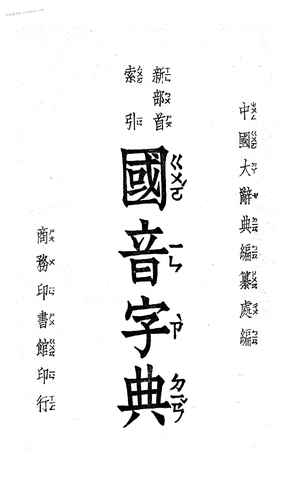 中國大辭典編纂處編
新部首
索引
國音字典
ㄍㄨㄛ ㄧㄣ ㄗ ㄉㄧㄢ
商務印書館印行